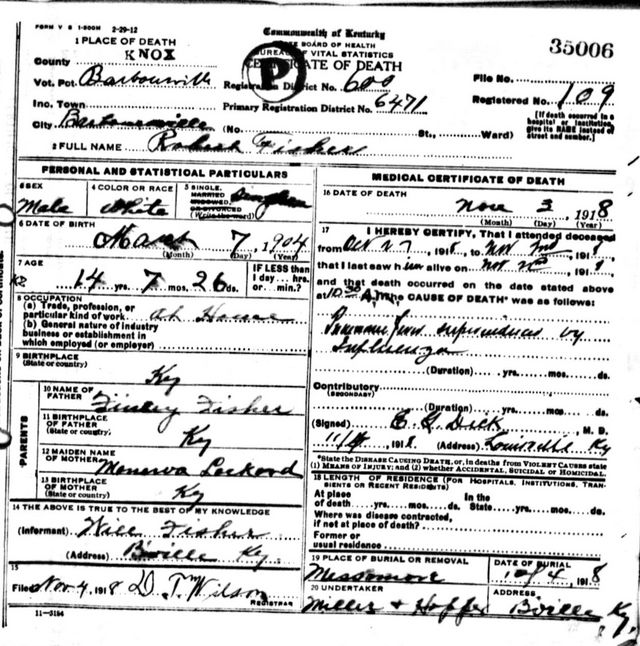 FORM V S 1-500M 2-29-12
Commonwealth of Kentucky
STATE BOARD OF HEALTH
BUREAU OF VITAL STATISTICS
CERTIFICATE OF DEATH
35006
P
1 PLACE OF DEATH
County KNOX
Vot. Pct. Barbourville
Inc. Town
City Barbourville (No. St., Ward)
Registration District No. 600
Primary Registration District No. 6471
File No.
Registered No. 109
[If death occurred in a hospital or institution, give its NAME instead of street and number.]
2 FULL NAME Robert Fisher
PERSONAL AND STATISTICAL PARTICULARS
3 SEX Male
4 COLOR OR RACE White
5 SINGLE, MARRIED, WIDOWED, OR DIVORCED (Write the word)
6 DATE OF BIRTH March 7, 1904
(Month) (Day) (Year)
7 AGE 14 yrs. 7 mos. 26 ds.
IF LESS than 1 day... hrs. or... min.?
8 OCCUPATION
(a) Trade, profession, or particular kind of work at Home
(b) General nature of industry business or establishment in which employed (or employer)
9 BIRTHPLACE (State or country) Ky
PARENTS
10 NAME OF FATHER Finley Fisher
11 BIRTHPLACE OF FATHER (State or country) Ky
12 MAIDEN NAME OF MOTHER Menerva
13 BIRTHPLACE OF MOTHER (State or country) Ky
14 THE ABOVE IS TRUE TO THE BEST OF MY KNOWLEDGE
(Informant) Will Fisher
(Address) B'ville Ky.
15
Filed Nov 4, 1918 D. T. Wilson
REGISTRAR
11-5184
MEDICAL CERTIFICATE OF DEATH
16 DATE OF DEATH
Nov 3, 1918
(Month) (Day) (Year)
17 I HEREBY CERTIFY, That I attended deceased
from Oct 27, 1918, to Nov, 1918,
that I last saw him alive on Nov, 1918,
and that death occurred on the date stated above
at 10:30 A.M. The CAUSE OF DEATH* was as follows:
by
Influenza
(Duration) yrs. mos. ds.
Contributory
(SECONDARY)
(Duration) yrs. mos. ds.
(Signed) E. L. Dick M. D.
1918 (Address) Louisville Ky
*State the DISEASE CAUSING DEATH, or, in deaths from VIOLENT CAUSES state (1) MEANS OF INJURY; and (2) whether ACCIDENTAL, SUICIDAL or HOMICIDAL.
18 LENGTH OF RESIDENCE (FOR HOSPITALS, INSTITUTIONS, TRANSIENTS OR RECENT RESIDENTS)
At place of death yrs. mos. ds. In the State yrs. mos. ds.
Where was disease contracted, if not at place of death?
Former or usual residence
19 PLACE OF BURIAL OR REMOVAL
DATE OF BURIAL
4, 1918
20 UNDERTAKER
Miller + Hopper
ADDRESS
B'ville Ky.